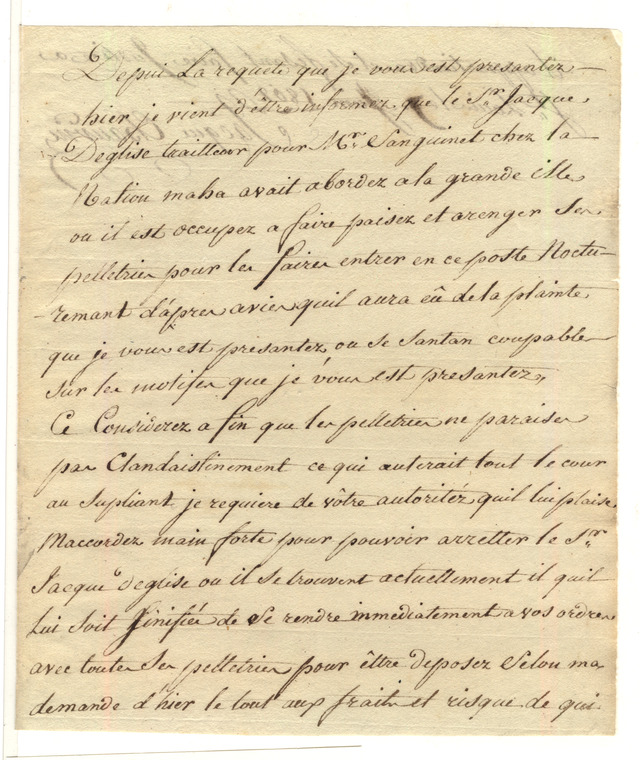 Depui La requete que je vous est presantez
hier je vient d'ettre informez que le Sr. Jacque
Deglise traitteur pour Mr. Sanguinet chez la
Nation maha avait abordez a la grande ille
ou il est occupez a faire paisez et arenger Ses
pelletries pour les faires entrer en ce poste Noctu-
-remant d'apres avies quil aura eû de la plainte
que je vous est presantez ou se Santan coupable
sur les motifes que je vous est presantez,
Ce Considerez a fin que les pelletries ne paraise
pas Clandaistinement ce qui auterait tout le cour
au Supliant je requiere de vôtre autoritéz quil lui plaise
M'accordez main forte pour pouvoir arretter le Sr.
Jacque Deglise ou il se trouvent actuellement il quil
Lui Soit Sinifiés de Se rendre immediatement a vos ordres
avec toutes Ses pelletries pour êttre deposez Selon ma
demande d'hier le tout aux fraits et risque de qui